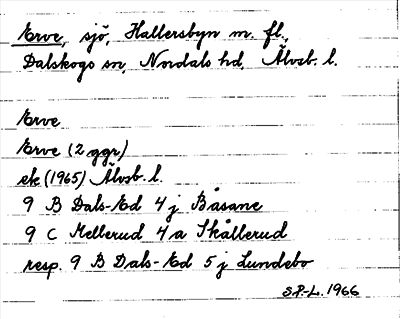 Erve, sjö, Hallersbyn m. fl.,
Dalskogs sn, Nordals hd, Älvsb. l.
Erve
Erve (2 ggr)
ek (1965) Älvsb. l.
9 B Dals-Ed 4 j Båsane
9 C Mellerud 4 a Skållerud
resp. 9 B Dals-Ed 5 j Lundebo
S.P-L. 1966